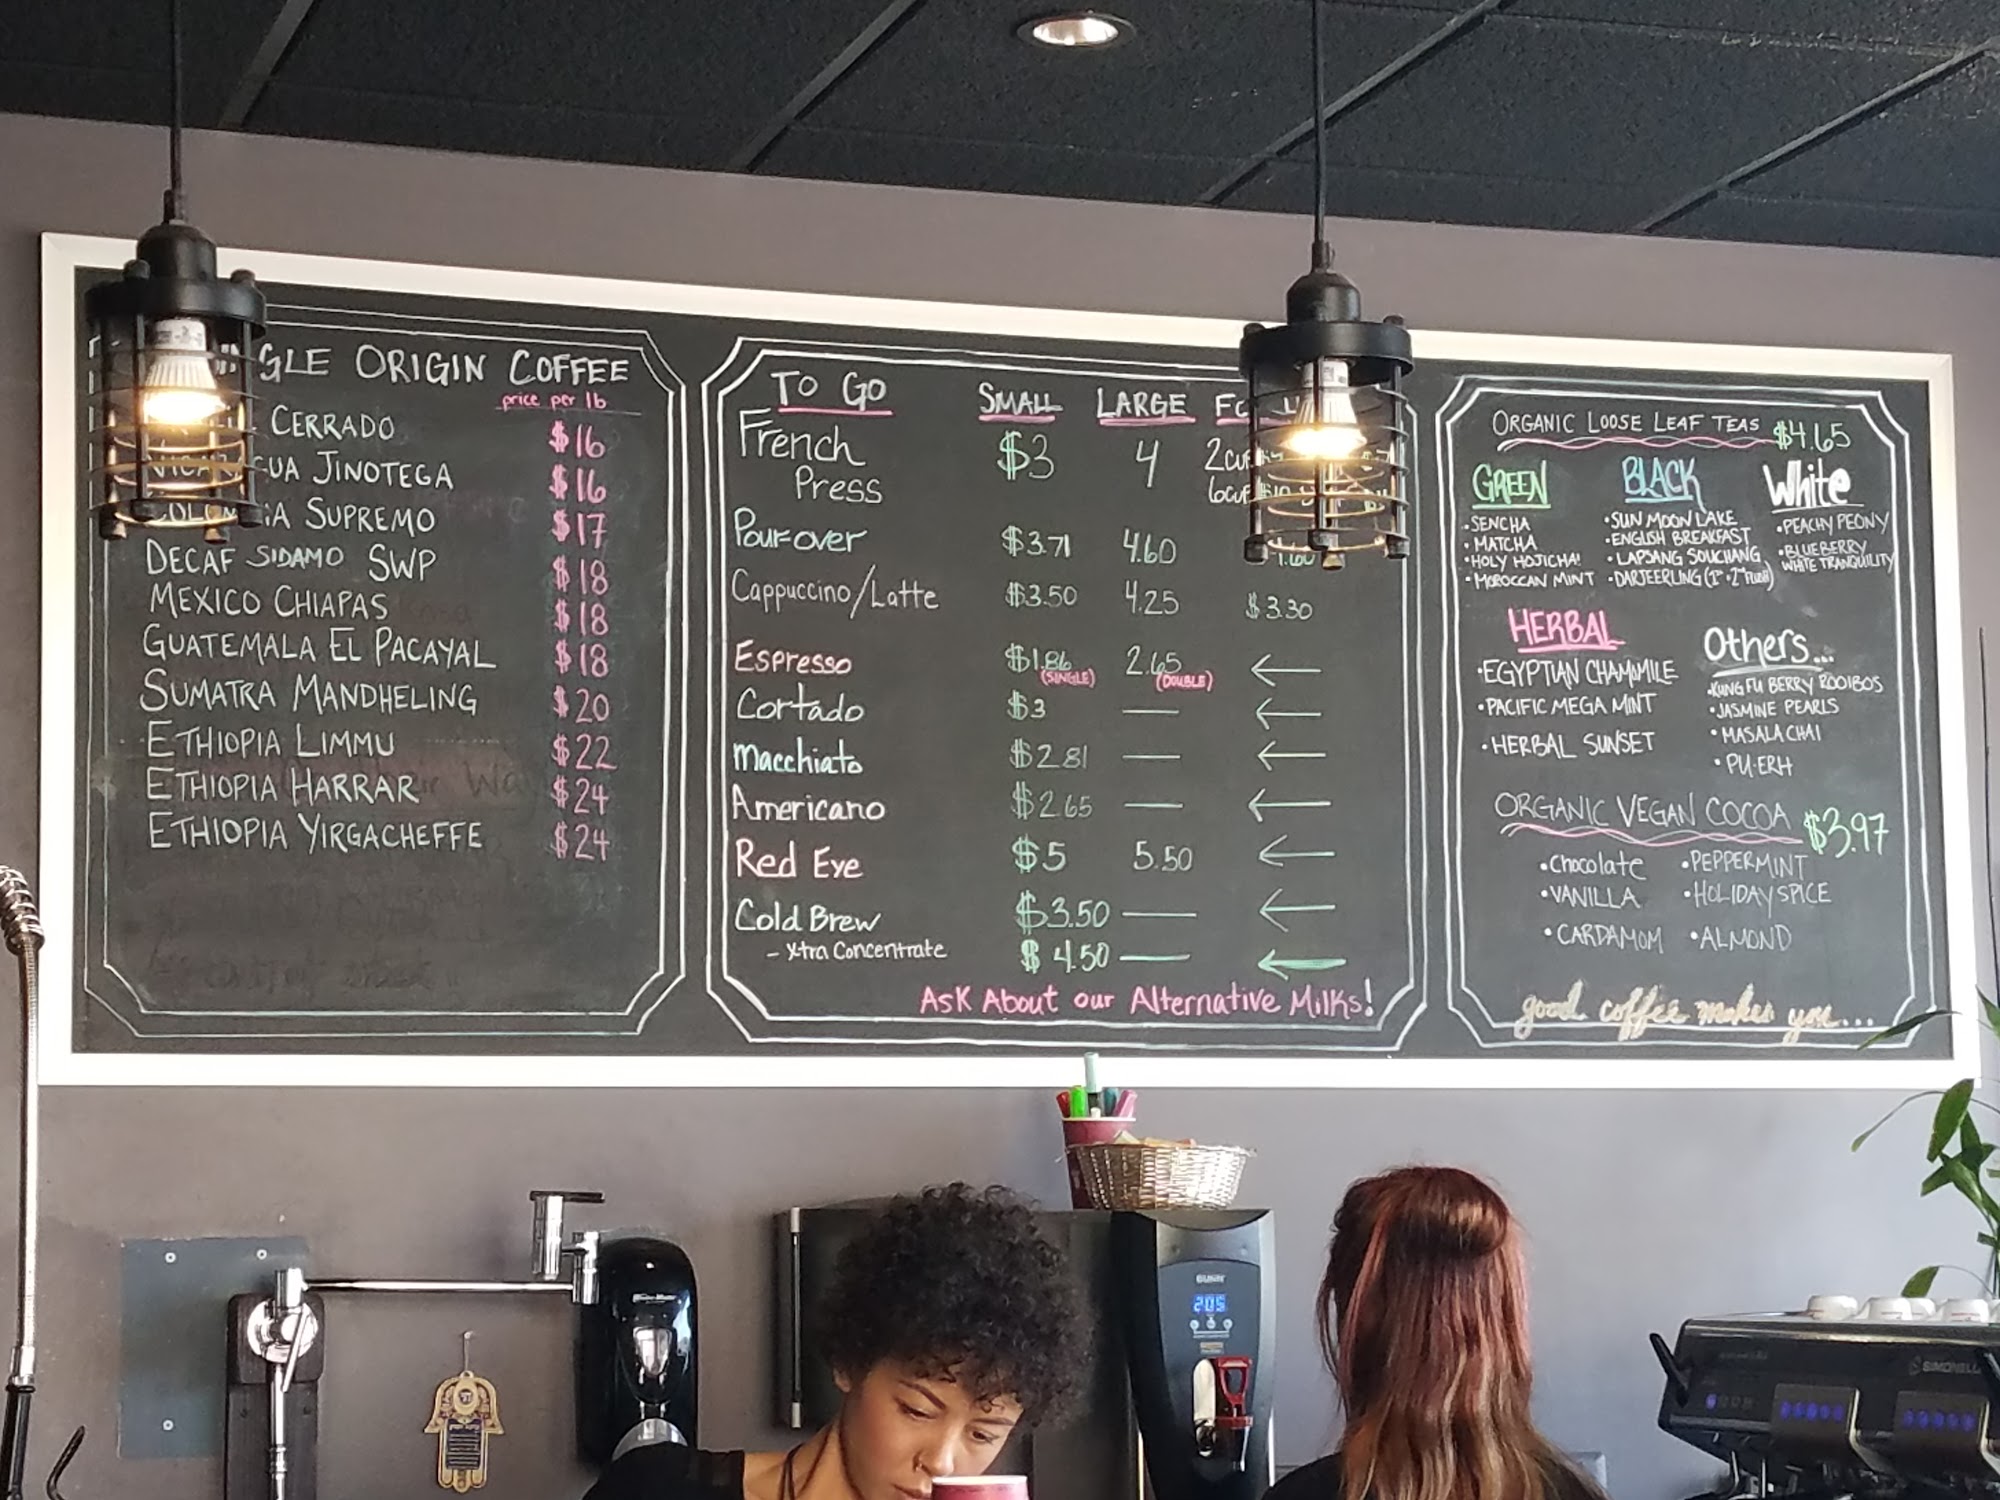 ORIGIN COFFEE
price per lb
CERRADO $16
JINOTEGA $16
SUPREMO $17
DECAF SIDAMO SWP $18
MEXICO CHIAPAS $18
GUATEMALA EL PACAYAL $18
SUMATRA MANDHELING $20
ETHIOPIA LIMMU $22
ETHIOPIA HARRAR $24
ETHIOPIA YIRGACHEFFE $24
TO GO SMALL LARGE
French Press $3 4
Pour over $3.71 4.60
Cappuccino/Latte $3.50 4.25 $3.30
Espresso $1.86 (SINGLE) 2.65 (DOUBLE) ←
Cortado $3 — ←
Macchiato $2.81 — ←
Americano $2.65 — ←
Red Eye $5 5.50 ←
Cold Brew $3.50 — ←
- Xtra Concentrate $4.50 — ←
Ask About our Alternative Milks!
ORGANIC LOOSE LEAF TEAS $4.65
GREEN
•SENCHA
•MATCHA
•HOLY HOJICHA!
•MOROCCAN MINT
BLACK
•SUN MOON LAKE
•ENGLISH BREAKFAST
•LAPSANG SOUCHANG
•DARJEERLING (1st + 2nd FLUSH)
White
•PEACHY PEONY
•BLUEBERRY
WHITE TRANQUILITY
HERBAL
•EGYPTIAN CHAMOMILE
•PACIFIC MEGA MINT
•HERBAL SUNSET
Others...
•KUNG FU BERRY ROOIBOS
•JASMINE PEARLS
•MASALA CHAI
•PU-ERH
ORGANIC VEGAN COCOA $3.97
•Chocolate •PEPPERMINT
•VANILLA •HOLIDAY SPICE
•CARDAMOM •ALMOND
good coffee makes you...
BUNN
205